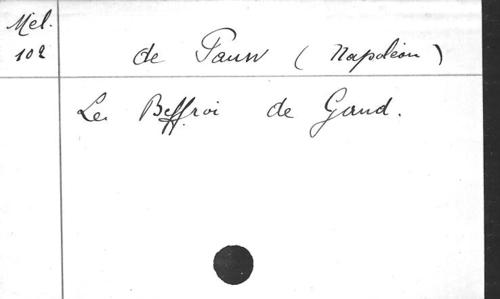 Mel.
102
de Pauw (Napoléon)
Le Beffroi de Gand.